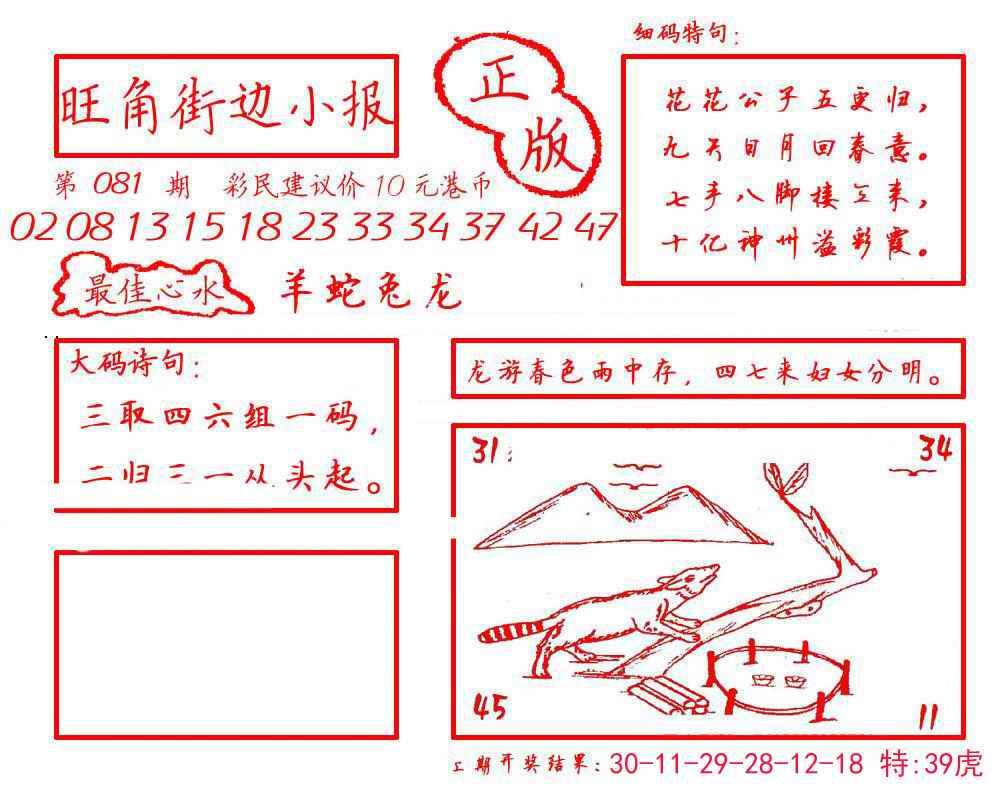 细码特句：
旺角街边小报
正版
花花公子五更归，
九天日月回春意。
七手八脚楼上来，
十亿神州溢彩霞。
第 081 期 彩民建议价10元港币
02 08 13 15 18 23 33 34 37 42 47
最佳心水 羊蛇兔龙
大码诗句：
三取四六组一码，
二归三一从头起。
龙游春色雨中存，四七来妇女分明。
31：
34
45
11
上期开奖结果：30-11-29-28-12-18 特：39虎